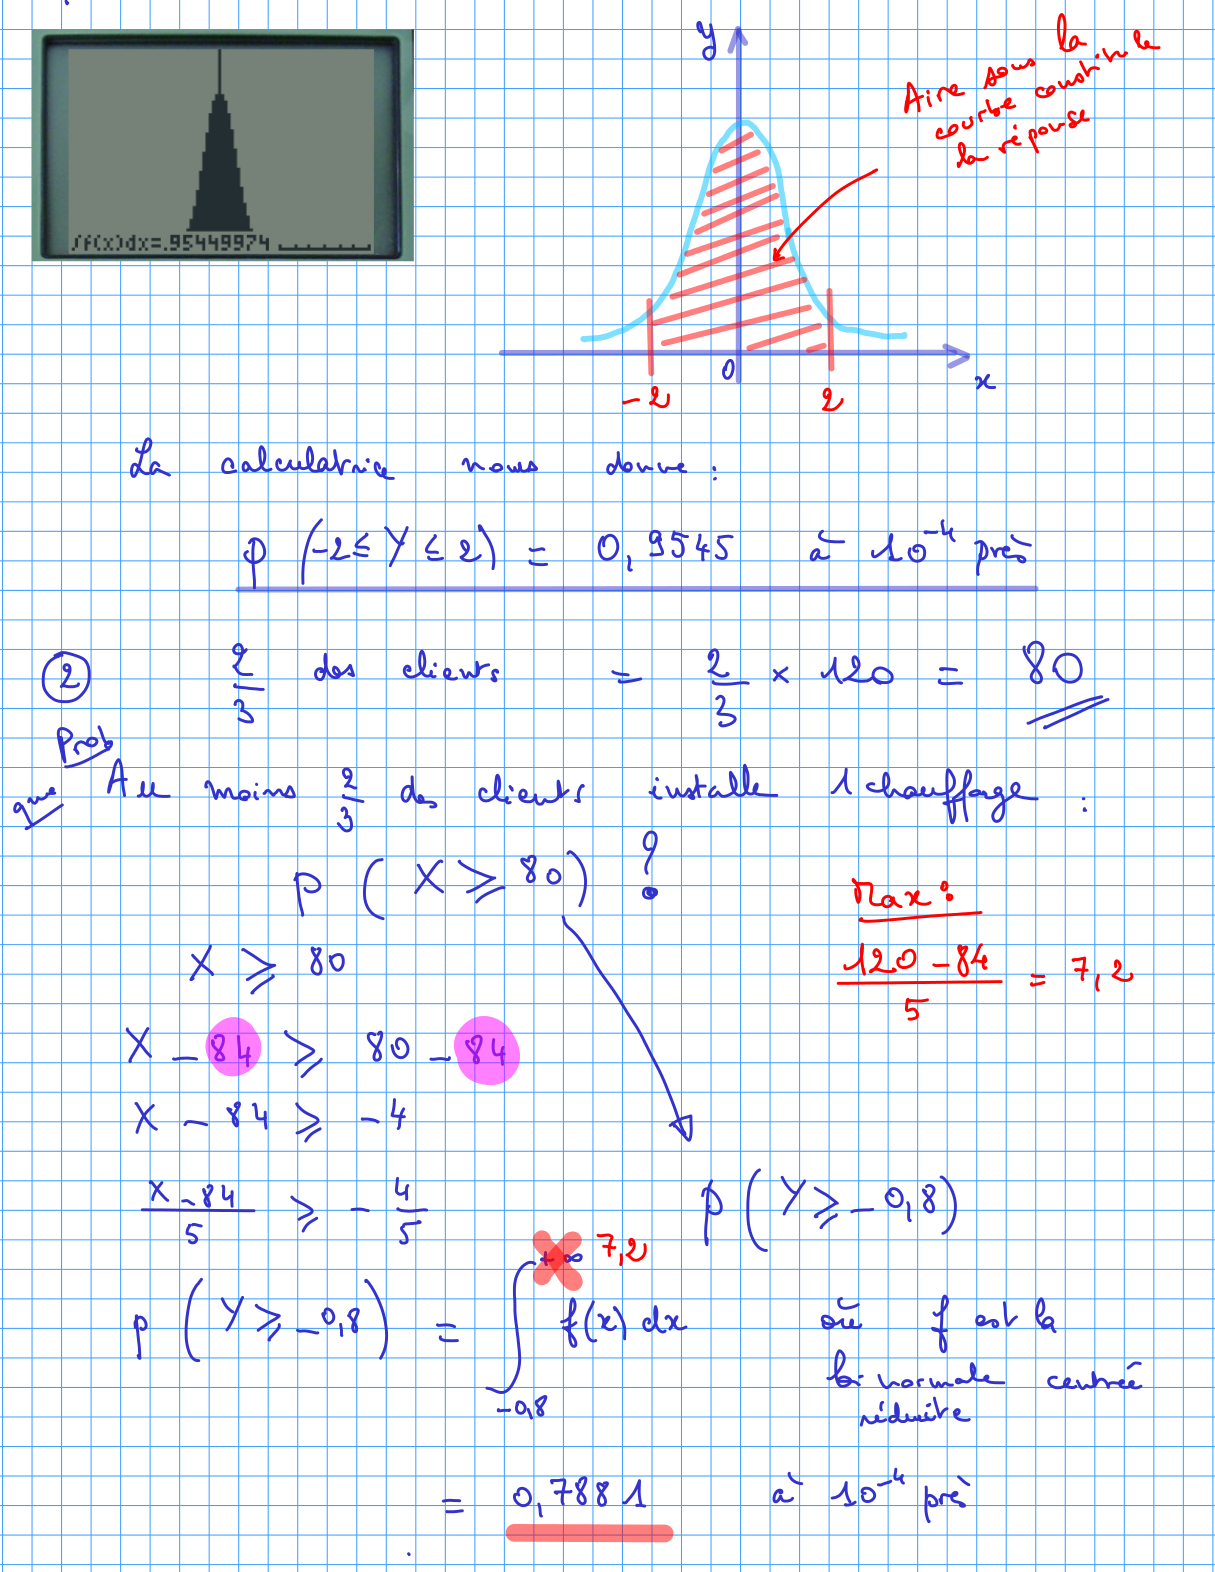 ∫f(x)dx=.95449974
y
Aire sous la
courbe constitue
la réponse
0
x
-2
2
La calculatrice nous donne :
p (-2 ≤ Y ≤ 2) = 0,9545 à 10⁻⁴ près
② 2/3 des clients = 2/3 × 120 = 80
Prob
que
Au moins 2/3 des clients installe 1 chauffage :
p ( X ⩾ 80 ) ?
Max :
X ⩾ 80
(120 - 84)/5 = 7,2
X - 84 ⩾ 80 - 84
X - 84 ⩾ -4
(X - 84)/5 ⩾ - 4/5
p ( Y ⩾ -0,8 )
+∞ 7,2
p ( Y ⩾ -0,8 ) = ∫ f(x) dx où f est la
-0,8
loi normale centrée
réduite
= 0,7881 à 10⁻⁴ près